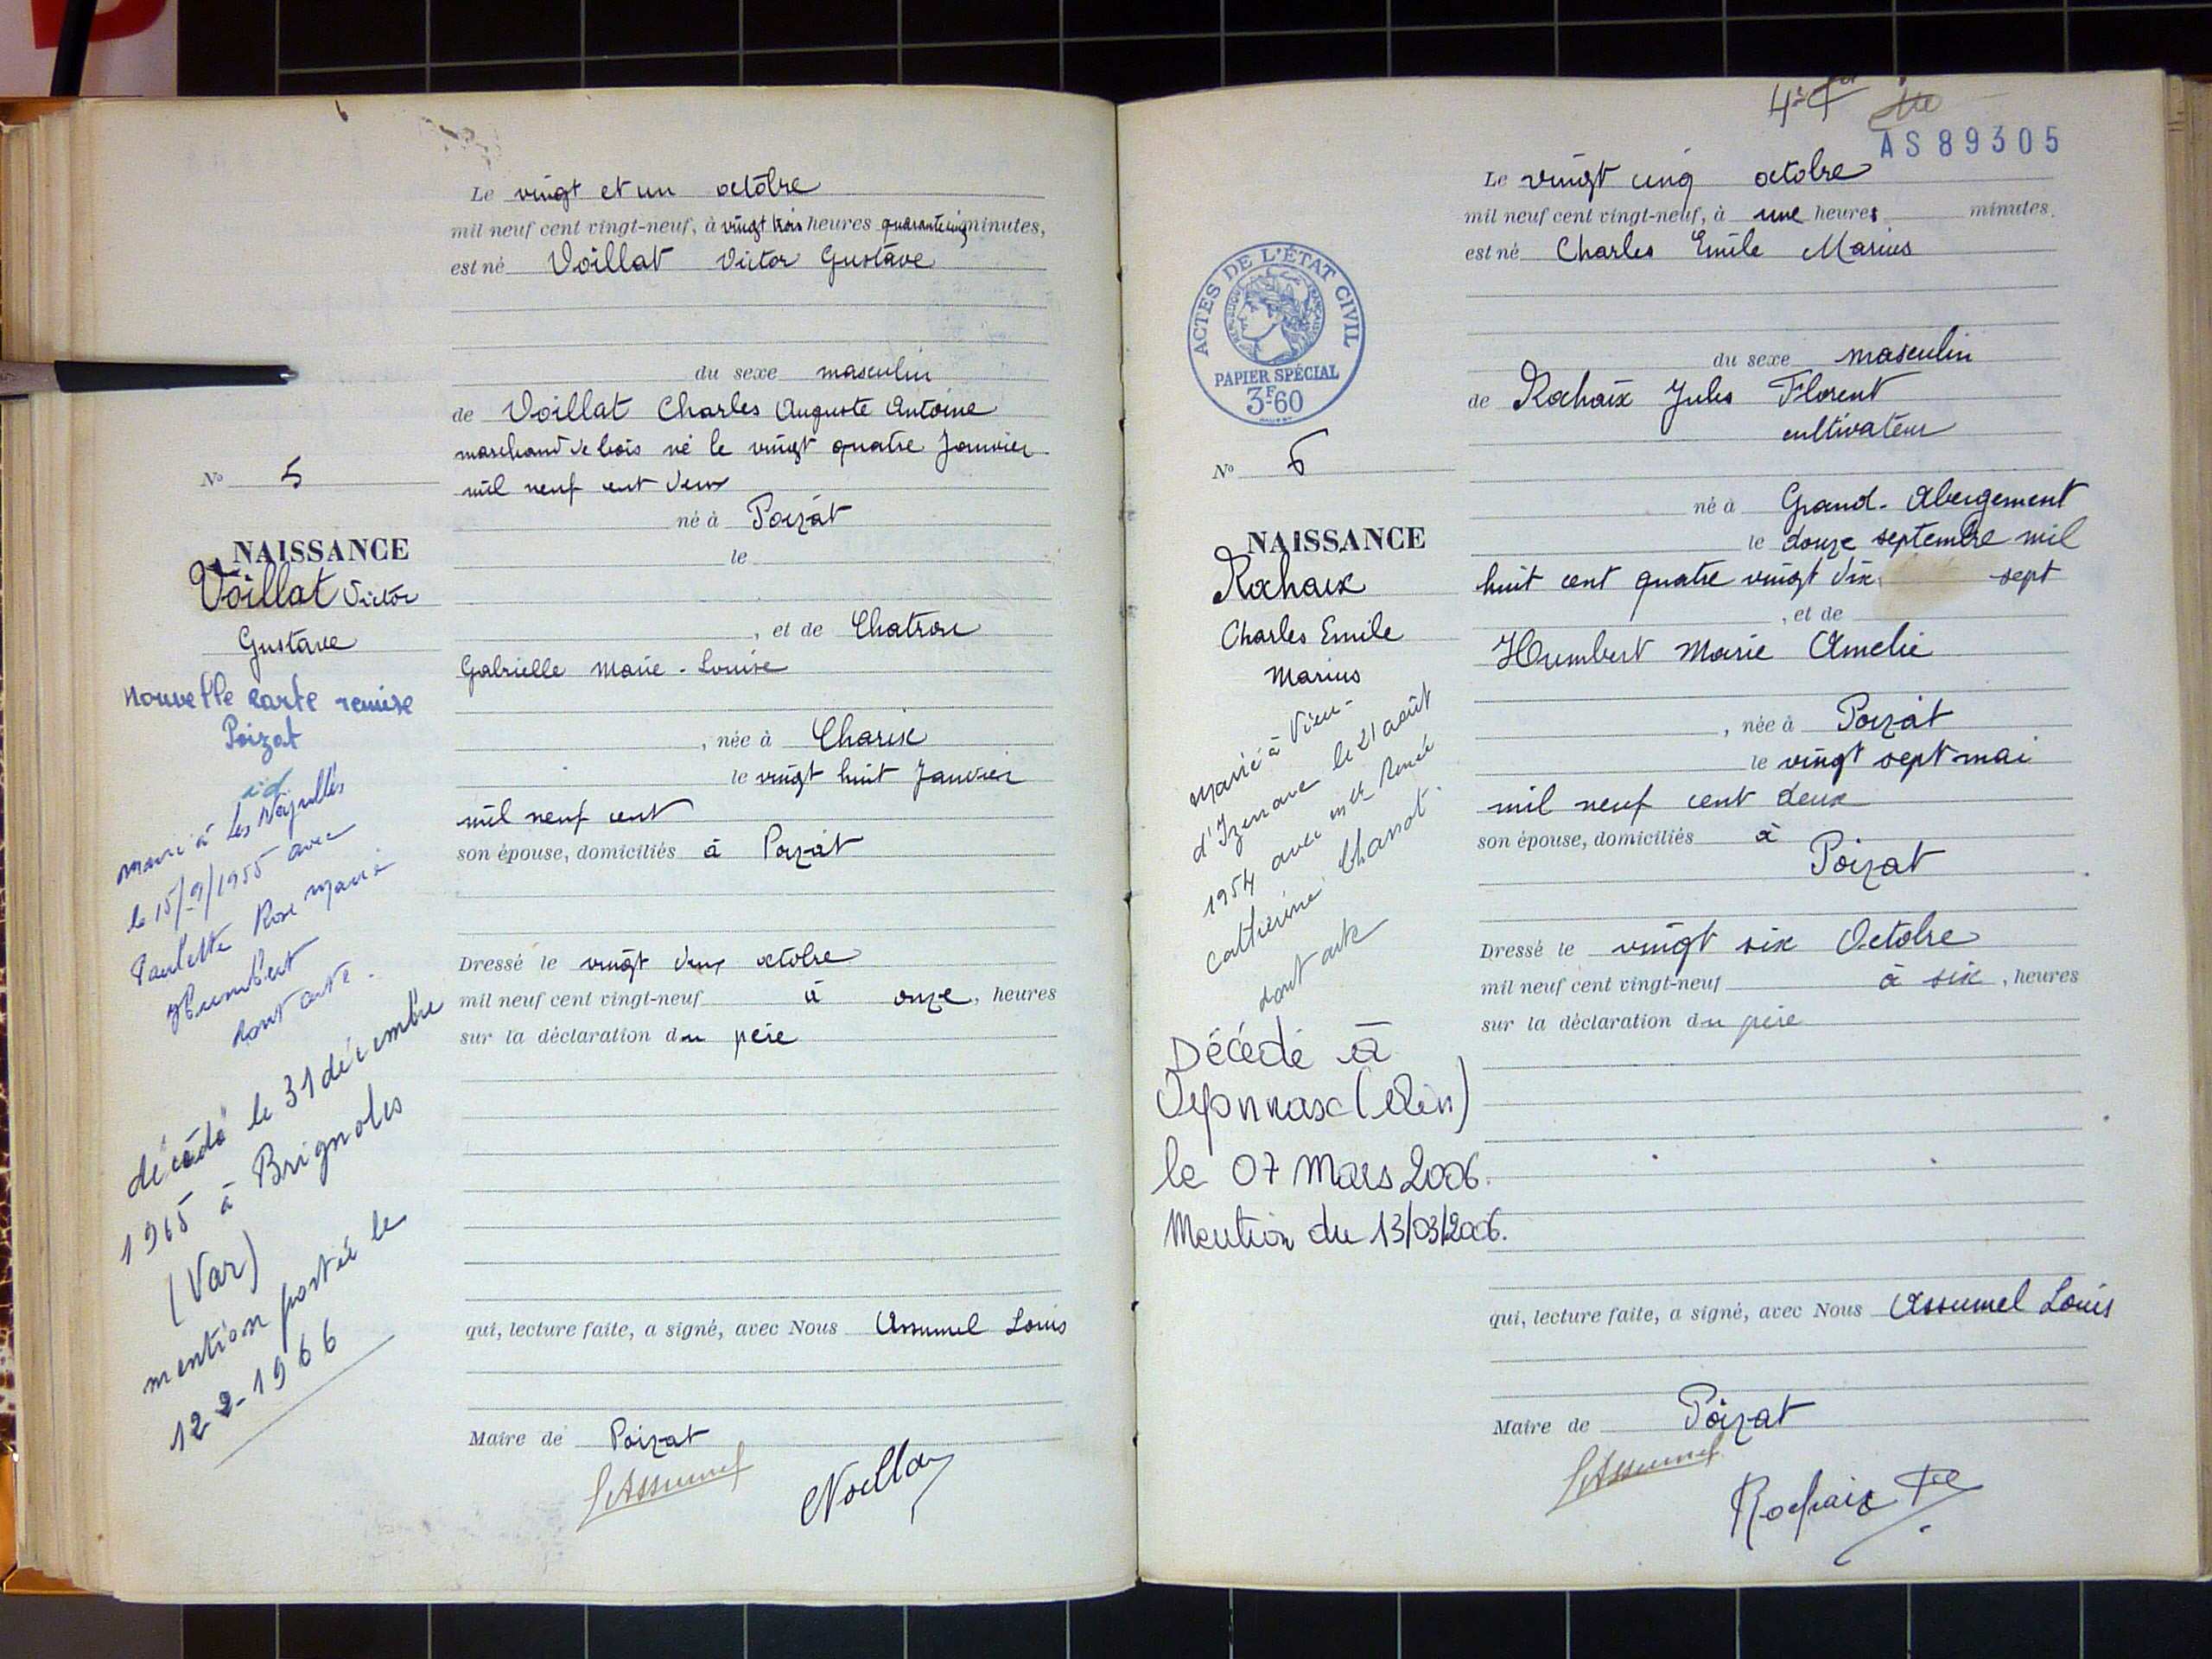 Le vingt et un octobre
mil neuf cent vingt-neuf, à vingt trois heures quarante cinq minutes,
est né Voillat Victor Gustave
du sexe masculin
de Voillat Charles Auguste Antoine
marchand de bois né le vingt quatre Janvier
mil neuf cent deux
né à Poizat
le
, et de Chatron
Gabrielle Marie-Louise
, née à Charix
le vingt huit Janvier
mil neuf cent
son épouse, domiciliés à Poizat
Dressé le vingt deux octobre
mil neuf cent vingt-neuf à onze, heures
sur la déclaration du père
qui, lecture faite, a signé, avec Nous Assumel Louis
Maire de Poizat
LAssumel
N° 5
NAISSANCE
Voillat Victor
Gustave
Nouvelle carte remise
Poizat
id
marié à Les Neyrolles
le 15/9/1955 avec
Paulette Rose Marie
Humbert
dont acte.
décédé le 31 décembre
1965 à Brignoles
(Var)
mention portée le
12-2-1966
AS 89305
Le vingt cinq octobre
mil neuf cent vingt-neuf, à une heures minutes.
est né Charles Emile Marius
du sexe masculin
de Rochaix Jules Florent
cultivateur
né à Grand-Abergement
le douze septembre mil
huit cent quatre vingt dix sept
, et de
Humbert Marie Amelie
, née à Poizat
le vingt sept mai
mil neuf cent deux
son épouse, domiciliés à
Poizat
Dressé le vingt six Octobre
mil neuf cent vingt-neuf à six, heures
sur la déclaration du père
qui, lecture faite, a signé, avec Nous Assumel Louis
Maire de Poizat
LAssumel
Rochaix
ACTES DE L'ÉTAT CIVIL
RÉPUBLIQUE FRANÇAISE
PAPIER SPÉCIAL
3F-60
N° 6
NAISSANCE
Rochaix
Charles Emile
Marius
Marié à Vieu-
d'Izenave le 21 août
1954 avec Mlle Renée
Catherine Chanot.
dont acte
Décédé à
Oyonnax (Ain)
le 07 Mars 2006.
Mention du 13/03/2006.